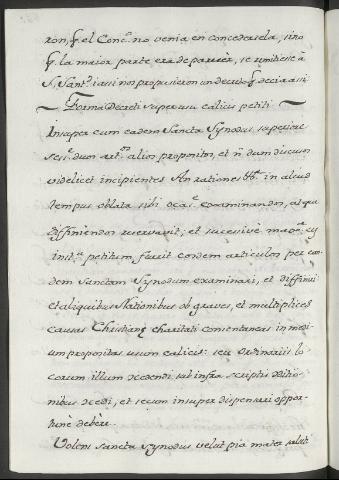 ron, q̃ el Conc.º no venia en concedersela, sino
q̃ la maior parte era de parecer, se remitiese à
S. Sant.ᵈ i assi nos propusieron un decreto q̃ decia assi
Forma Decreti super usu calicis petiti
Insuper cum eadem Sancta Synodus, superiore
sess.ᵉ duos art.ᵒˢ alios propositos, et ñ dum discussos
videlicet incipientes An rationes &ᵃ. in aliud
tempus oblata sibi ocas.ᵉ examinandos, atque
diffiniendos reservavit; et sucesivè
petitum fuerit eosdem articulos per ean-
dem Sanctam Synodum examinari, et diffiniri
et aliquibus Nationibus ob graves, et multiplices
causas Christianę charitati consentaneas in medi-
um propositas usum calicis: seu Ordinariis lo-
corum illum concedendi sub infra scriptis
nibus concedi, et secum insuper dispensari oppor-
tunè debère.
Volens Sancta Synodus velut pia mater saluti